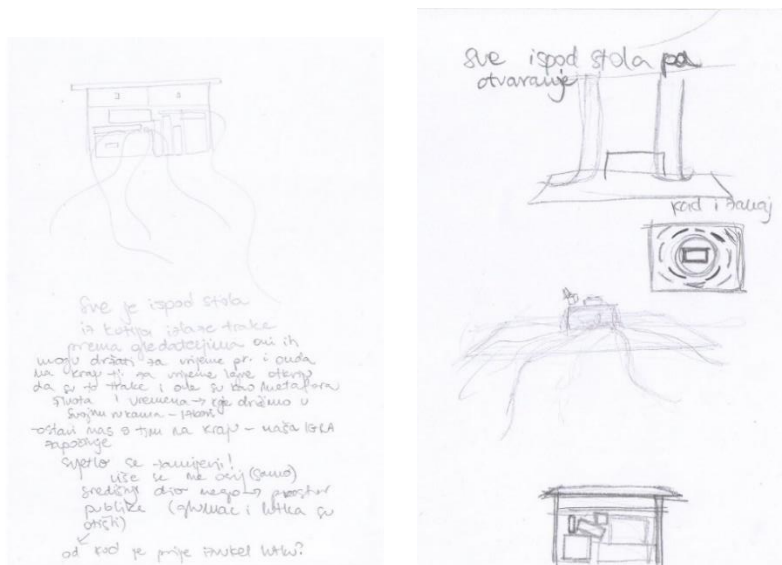 Sve je ispod stola
iz kutija izlaze trake
prema gledateljima oni ih
mogu držati za vrijeme pr. i onda
na kraju ti za vrijeme igre otkriju
da su to trake i one su kao metafora
života i vremena → koje držimo u
svojim rukama -
ostavi nas s tim na kraju - naša IGRA
započinje
svjetlo se zamijeni!
više se ne (samo)
središnji dio nego → prostor
publike (glumac i lutka su
otišli)
od kud je prije lutku?
Sve ispod stola pa
otvaranje
kad i